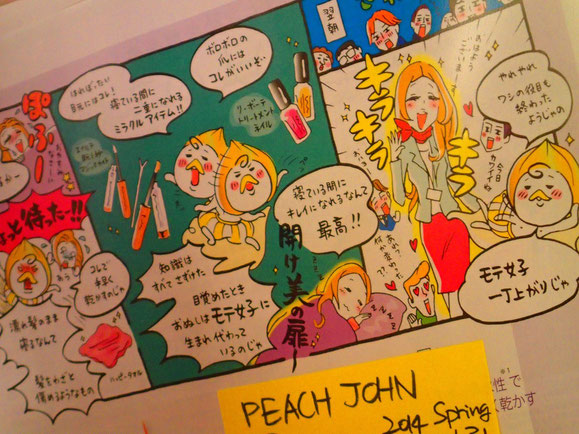 翌朝
おはよう
ございまーす
やれやれ
ワシの役目も
終わった
ようじゃの
今日
カワイイ
キラキラ
キラ
モテ女子
一丁上がりじゃ
ボロボロの
爪には
コレがいいぞ
トリートメント
ネイル
はれぼったい
目元にはコレ!
寝ている間に
二重になれる
ミラクルアイテム!!
寝ている間に
キレイになれるなんて
最高!!
知識は
すべてさずけた
目覚めたとき
おぬしはモテ女子に
生まれ代わって
いるのじゃ
開け美の扉〜
zzz
ぽふー
ょっと待ったー!!
コレで
手早く
乾かすのじゃ
濡れ髪のまま
寝るなんて
髪をわざと
傷めるようなもの
ハッピータオル
PEACH JOHN
2014 Spring
性で
く乾かす